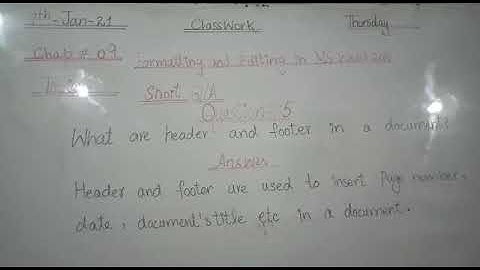 7th-Jan-21 ClassWork Thursday
Chap # 09 Formatting and Editing in
Short Q/A
Question 5
What are header and footer in a document?
Answer
Header and footer are used to insert Page number,
date, document's title etc in a document.